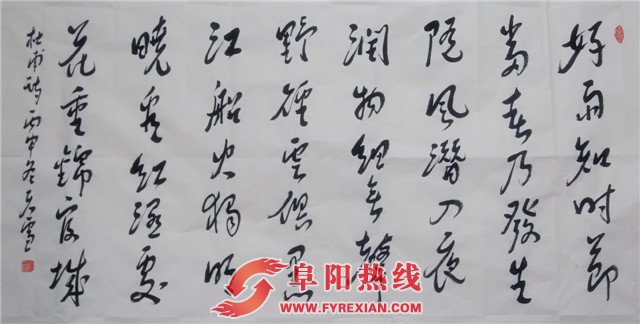 好雨知时节
当春乃發生
随風潜入夜
润物细无声
野径雲俱黑
江船火独明
曉看红湿处
花重錦官城
杜甫诗 丙申冬
阜阳热线
WWW.FYREXIAN.COM